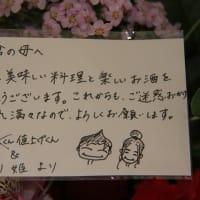 の母へ
美味しい料理と楽しいお酒を
うございます。これからも、ご迷惑おかけ
満々なので、よろしくお願います。
くん値上げくん
&
姫より